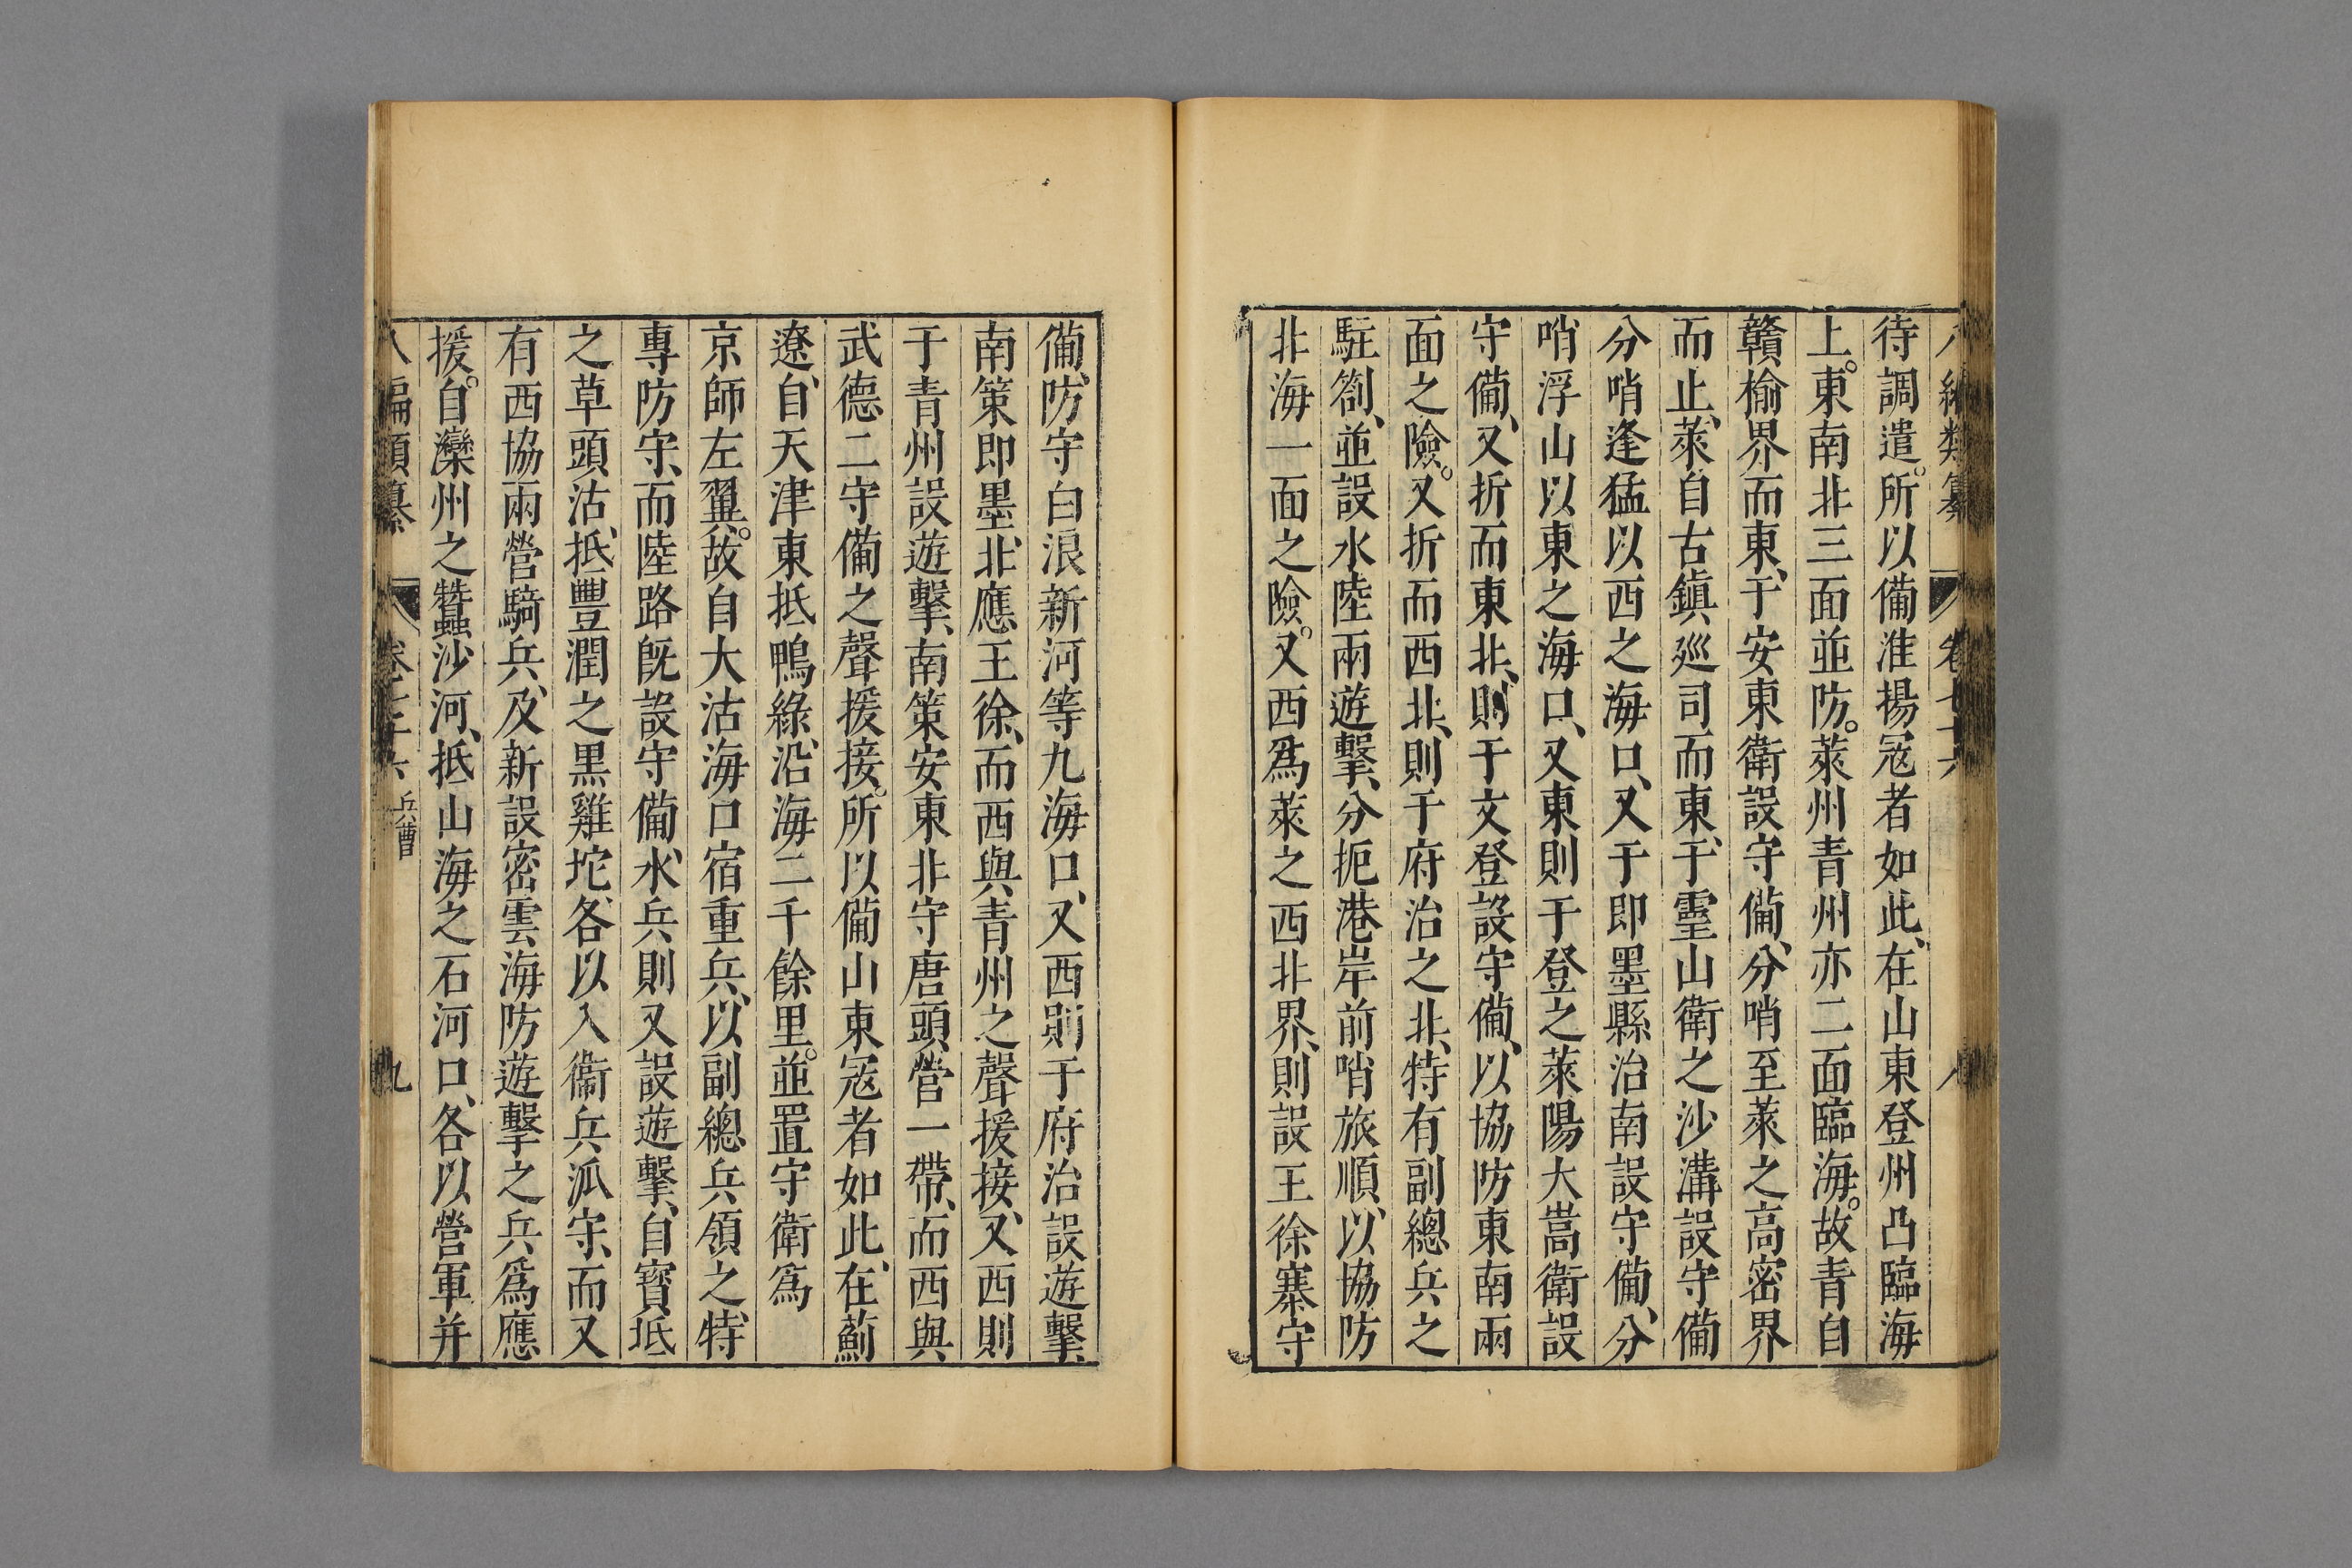 待調遣。所以備淮揚宼者如此、在山東登州凸臨海
上。東南北三面並防。萊州青州亦二面臨海。故青自
贛榆界而東、于安東衛設守備、分哨至萊之高密界
而止、萊自古鎮廵司而東、于靈山衛之沙溝設守備
分哨逢猛以西之海口、又于即墨縣治南設守備、分
哨浮山以東之海口、又東則于登之萊陽大嵩衛設
守備、又折而東北、則于文登設守備、以協防東南兩
面之險。又折而西北、則于府治之北、特有副總兵之
駐劄、並設水陸兩遊擊、分扼港岸前哨旅順、以協防
北海一面之險。又西爲萊之西北界、則設王徐寨守
備、防守白浪新河等九海口、又西則于府治設遊擊、
南策即墨、北應王徐、而西與青州之聲援接、又西則
于青州設遊擊、南策安東北守唐頭營一帶、而西與
武德二守備之聲援接。所以備山東宼者如此、在薊
遼、自天津東抵鴨綠、沿海二千餘里。並置守衛爲
京師左翼。故自大沽海口宿重兵、以副總兵領之、特
專防守、而陸路旣設守備、水兵則又設遊擊、自寳坻
之草頭沽、抵豐潤之黒雞坨、各以入衞兵派守、而又
有西協兩營騎兵、及新設密雲海防遊擊之兵爲應
援。自灤州之蠶沙河、抵山海之石河口、各以營軍并
八編類纂 卷七十六 兵曹 九